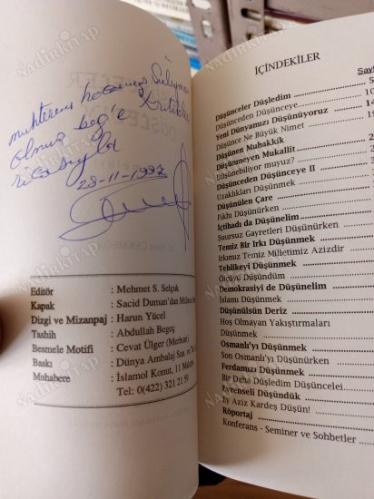 muhterem hocamız Süleyman
beğ'e
28-11-1997
Editör : Mehmet S. Selpak
Kapak : Sacid Duman'dan
Dizgi ve Mizanpaj : Harun Yücel
Tashih : Abdullah Begoş
Besmele Motifi : Cevat Ülger (Merhum)
Baskı : Dünya Ambalaj San. ve
Muhabere : İslamol Konut, 11
Tel: 0(422) 321 21
İÇİNDEKİLER
Düşünceler Düşledim
Düşünceden Düşünceye
Yeni Dünyamızı Düşünüyoruz
Düşünce Ne Büyük Nimet
Düşünen Muhakkik
Düşünmeyen Mukallit
Düşünebiliyor muyuz?
Düşünceden Düşünceye II
Uzaklıkları Düşünmek
Düşünülen Çare
Fıkhı Düşünürken
İçtihadı da Düşünelim
Sınırsız Gayretleri Düşünürken
Temiz Bir Irkı Düşünmek
Irkımız Temiz Milletimiz Azizdir
Tehlikeyi Düşünmek
Ölçüyü Düşündüm
Demokrasiyi de Düşünelim
İslamı Düşünmek
Düşünülsün Deriz
Hoş Olmayan Yakıştırmaları
Düşünmek
Osmanlı'yı Düşünmek
Son Osmanlı'yı Düşünürken
Ferdamızı Düşünmek
Bir Daha Düşledim Düşünceleri
Evrenseli Düşündük
Ey Aziz Kardeş Düşün!
Röportaj
Konferans - Seminer ve Sohbetler